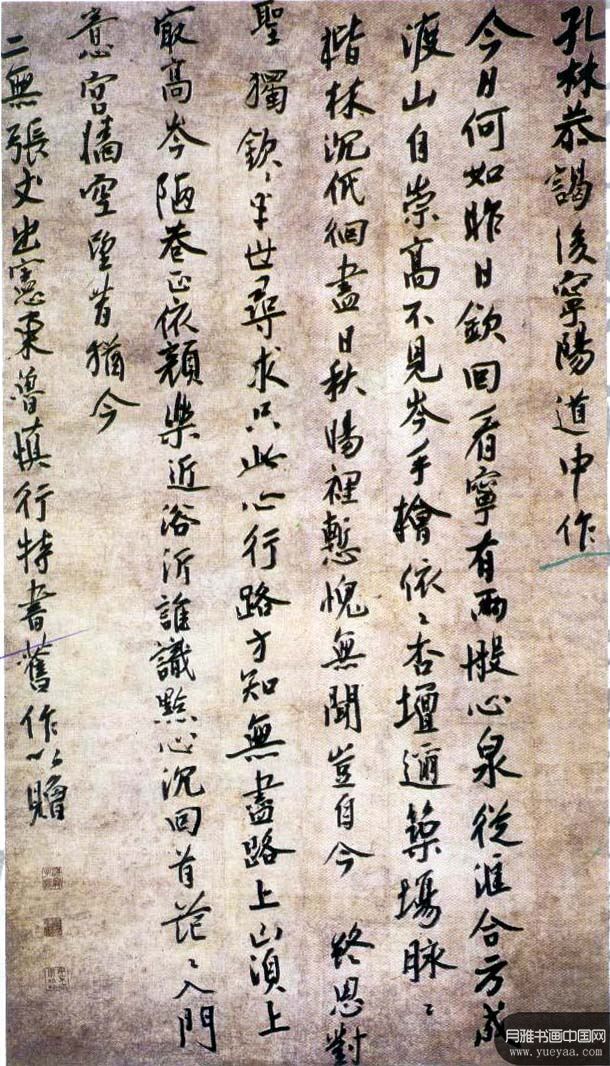 孔林恭謁後寧陽道中作
今日何如昨日欽回看寧有兩般心泉從滙合方成
渡山自崇高不見岑手檜依〻杏壇邇築場脉〻
楷林沉低徊盡日秋陽裡慙愧無聞豈自今 終思對
聖獨欽〻半世尋求只此心行路方知無盡路上山須上
㝡高岑陋巷正依顏樂近浴沂誰識點心沉回首茫〻入門
意宮墻空望昔猶今
二無張丈出憲東魯慎行特書舊作以贈
月雅书画中国网
www.yueyaa.com